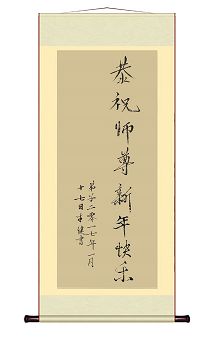 恭祝师尊新年快乐
弟子二零一七年一月
十七日